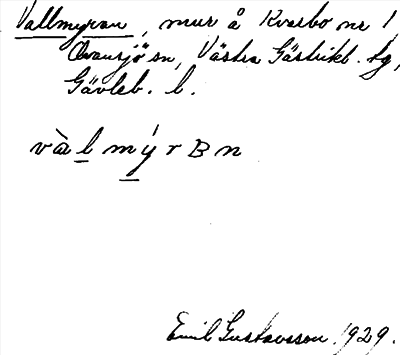 Vallmyran, mur å Kvarbo nr 1
Ovansjö sn, Västra Gästrikl. tg,
Gävleb. l.
vàl mýrBn
Emil Gustavsson. 1929.